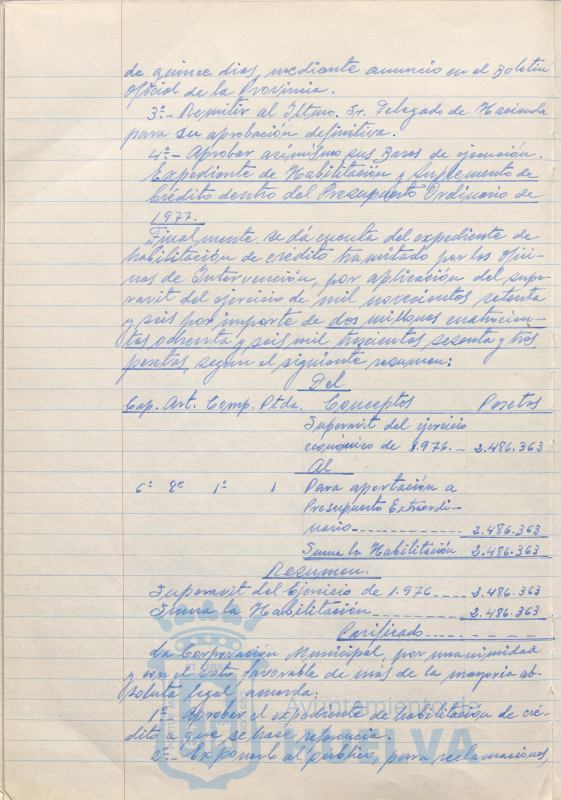 de quince dias, mediante anuncio en el Boletin
Oficial de la Provincia.
3º.- Remitir al Iltmo. Sr. Delegado de Hacienda
para su aprobación definitiva.
4º.- Aprobar asimismo sus Bases de ejecución.
Expediente de Habilitación y Suplemento de
Crédito dentro del Presupuesto Ordinario de
1977.
Finalmente se dá cuenta del expediente de
habilitación de crédito tramitado por las Ofici-
nas de Intervención, por aplicación del supe-
ravit del ejercicio de mil novecientos setenta
y seis por importe de dos millones cuatrocien-
tas ochenta y seis mil trescientas sesenta y tres
pesetas, segun el siguiente resumen:
Del
Cap. Art. Comp. Ptda. Conceptos Pesetas
Superavit del ejercicio
económico de 1.976.- 2.486.363
Al
6º 8º 1º 1 Para aportación a
Presupuesto Extraordi-
nario------------ 2.486.363
Suma la Habilitación 2.486.363
Resumen.
Superavit del Ejercicio de 1.976---- 2.486.363
Suma la Habilitación---------- 2.486.363
------------
La Corporación Municipal, por unanimidad
y con el voto favorable de más de la mayoria ab-
soluta legal acuerda:
1º Aprobar el expediente de habilitación de cré-
dito a que se hace referencia.
2º.- Exponerlo al público, para reclamaciones,
Ayuntamiento de
HUELVA